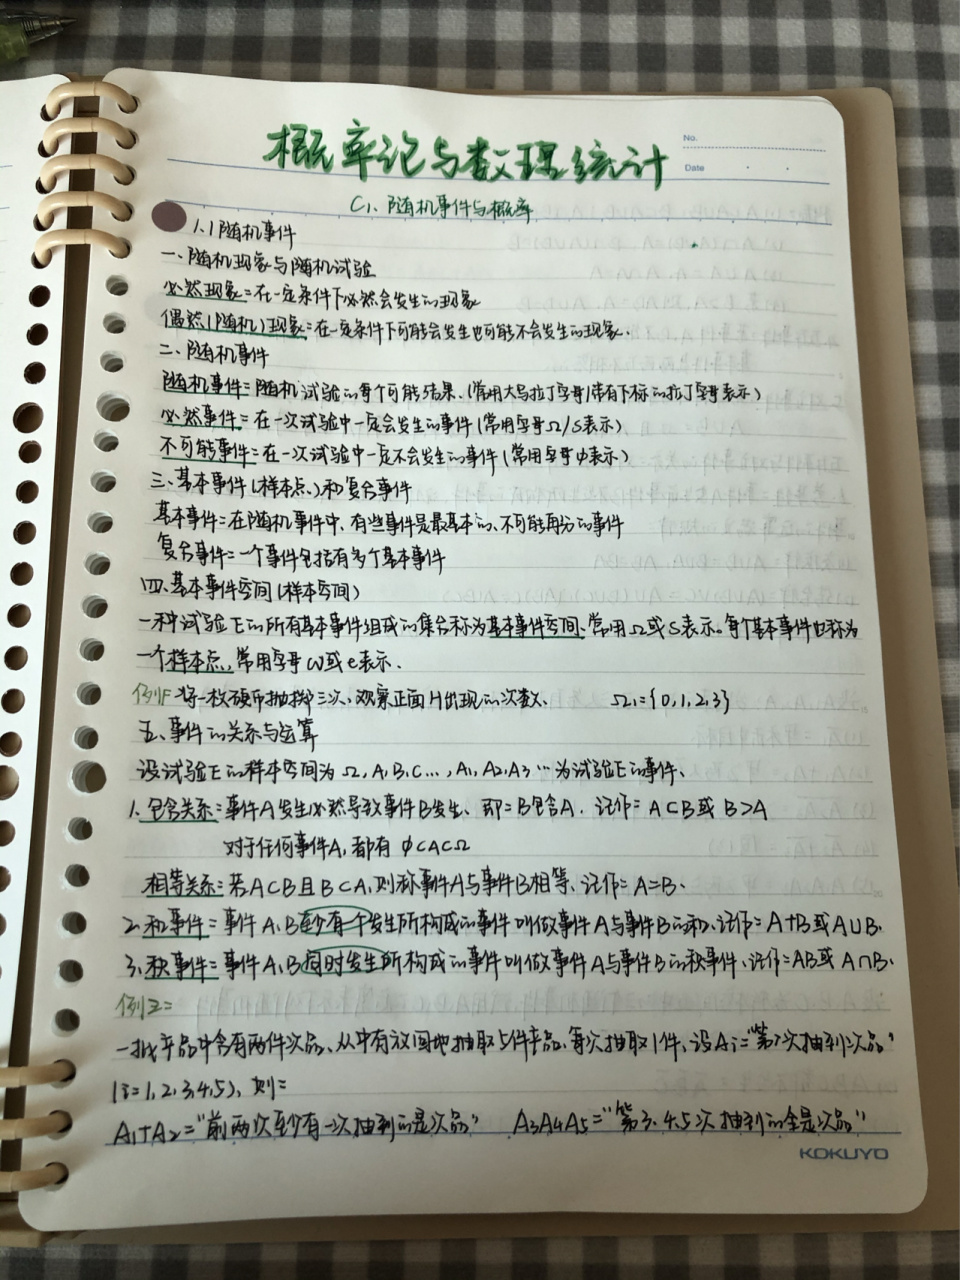 概率论与数理统计
No.
Date
C1. 随机事件与概率
1.1 随机事件
一、随机现象与随机试验
必然现象=在一定条件下必然会发生的现象
偶然(随机)现象=在一定条件下可能会发生也可能不会发生的现象.
二、随机事件
随机事件=随机试验的每个可能结果.(常用大写拉丁字母/带有下标的拉丁字母表示)
必然事件=在一次试验中一定会发生的事件(常用字母Ω/S表示)
不可能事件=在一次试验中一定不会发生的事件(常用字母φ表示)
三、基本事件(样本点)和复合事件
基本事件=在随机事件中、有些事件是最基本的、不可能再分的事件
复合事件=一个事件包括有多个基本事件
四、基本事件空间(样本空间)
一种试验E的所有基本事件组成的集合称为基本事件空间、常用Ω或S表示。每个基本事件也称为
一个样本点,常用字母ω或e表示.
例1= 将一枚硬币抛掷三次、观察正面H出现的次数、 Ω1={0,1,2,3}
五、事件的关系与运算
设试验E的样本空间为Ω,A,B,C…,A1,A2,A3…为试验E的事件、
1、包含关系=事件A发生必然导致事件B发生、即=B包含A. 记作= A⊂B或 B⊃A
对于任何事件A,都有 φ⊂A⊂Ω
相等关系=若A⊂B且B⊂A,则称事件A与事件B相等、记作=A=B.
2、和事件=事件A、B至少有一个发生所构成的事件叫做事件A与事件B的和、记作=A+B或A∪B.
3、积事件=事件A、B同时发生所构成的事件叫做事件A与事件B的积事件、记作=AB或A∩B.
例2=
一批产品中含有两件次品、从中有放回地抽取5件产品、每次抽取1件、设Ai="第i次抽到次品"
(i=1,2,3,4,5), 则=
A1+A2="前两次至少有一次抽到的是次品" A3A4A5="第3.4.5次抽到的全是次品"
KOKUYO